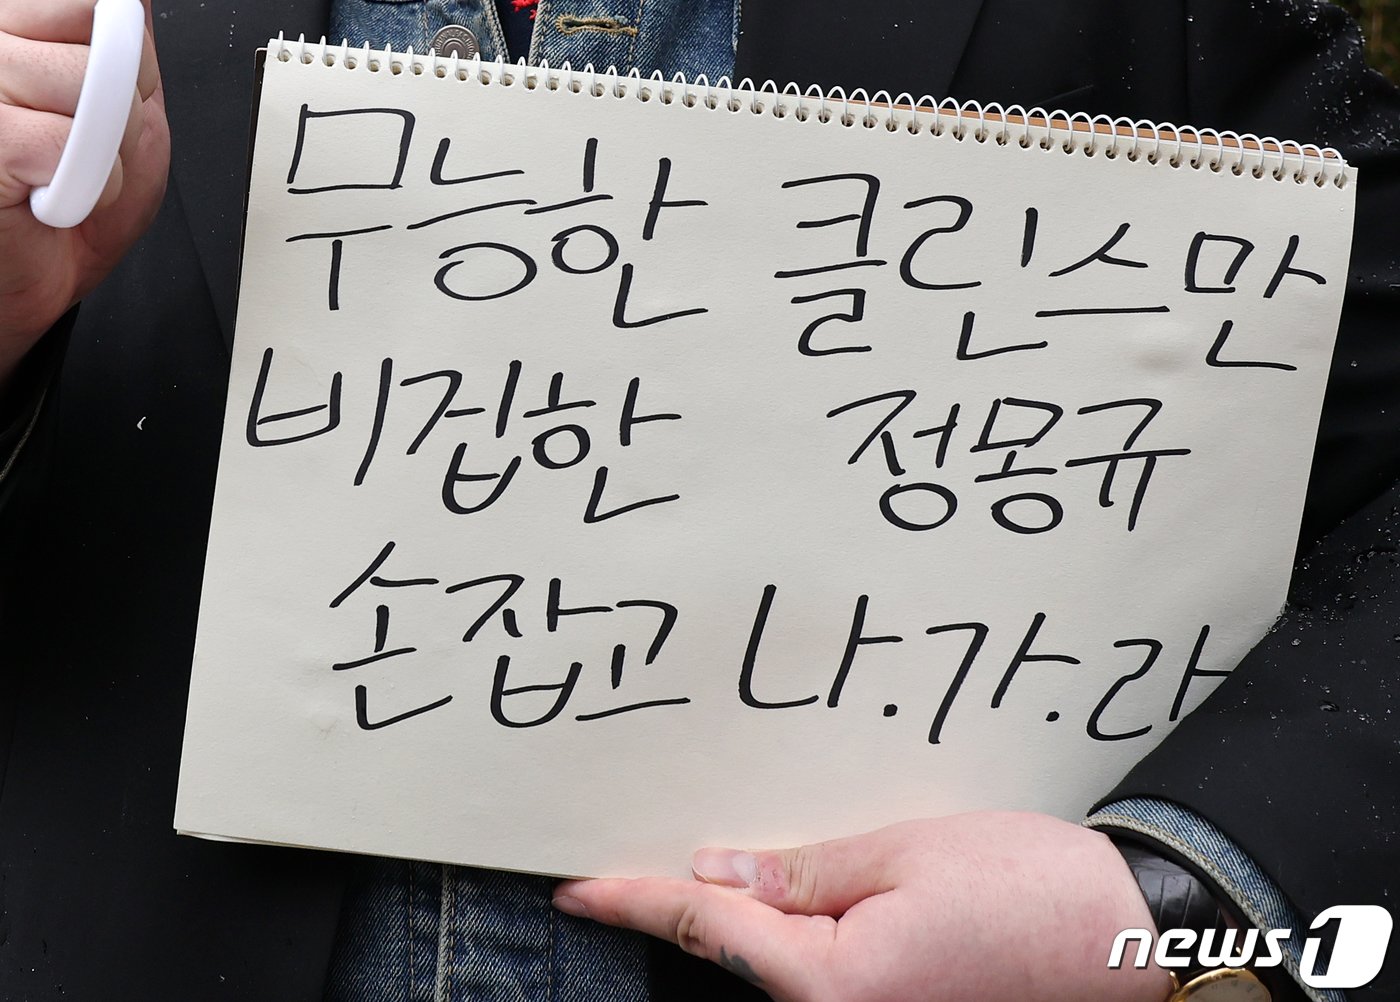 무능한 클린스만
비집한 정몽규
손잡고 나.가.라
news1